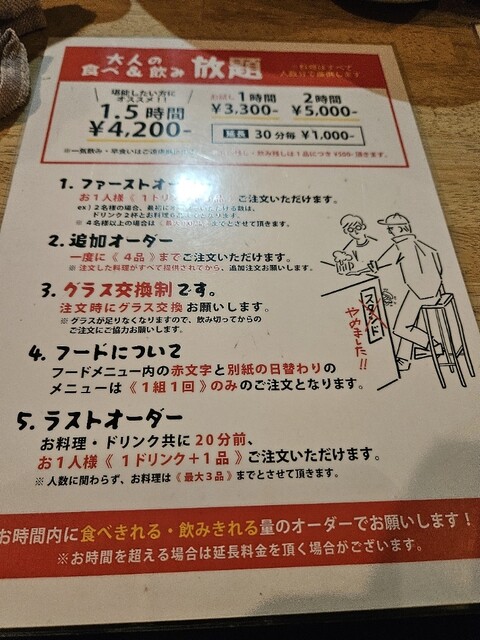 大人の
食べ&飲み 放題
※料理はすべて
人数分で提供します
堪能したい方に
オススメ!!
1.5時間
¥4,200-
お試し 1時間
¥3,300-
2時間
¥5,000-
延長 30分毎 ¥1,000-
※一気飲み・早食いはご遠慮
飲み残しは1品につき¥500-頂きます。
1. ファーストオー
お1人様《1ドリンク ご注文いただけます。
ex)2名様の場合、最初に ける数は、
ドリンク2杯とお料理 となります。
※4名様以上の場合は までとさせて頂きます。
2. 追加オーダー
一度に《4品》までご注文いただけます。
※注文した料理がすべて提供されてから、追加注文お願いします。
3. グラス交換制です。
注文時にグラス交換お願いします。
※グラスが足りなくなりますので、飲み切ってからの
ご注文にご協力お願いします。
スタンド
やめました!!
4. フードについて
フードメニュー内の赤文字と別紙の日替わりの
メニューは《1組1回》のみのご注文となります。
5. ラストオーダー
お料理・ドリンク共に20分前、
お1人様《1ドリンク+1品》ご注文いただけます。
※人数に関わらず、お料理は《最大3品》までとさせて頂きます。
お時間内に食べきれる・飲みきれる量のオーダーでお願いします!
※お時間を超える場合は延長料金を頂く場合がございます。